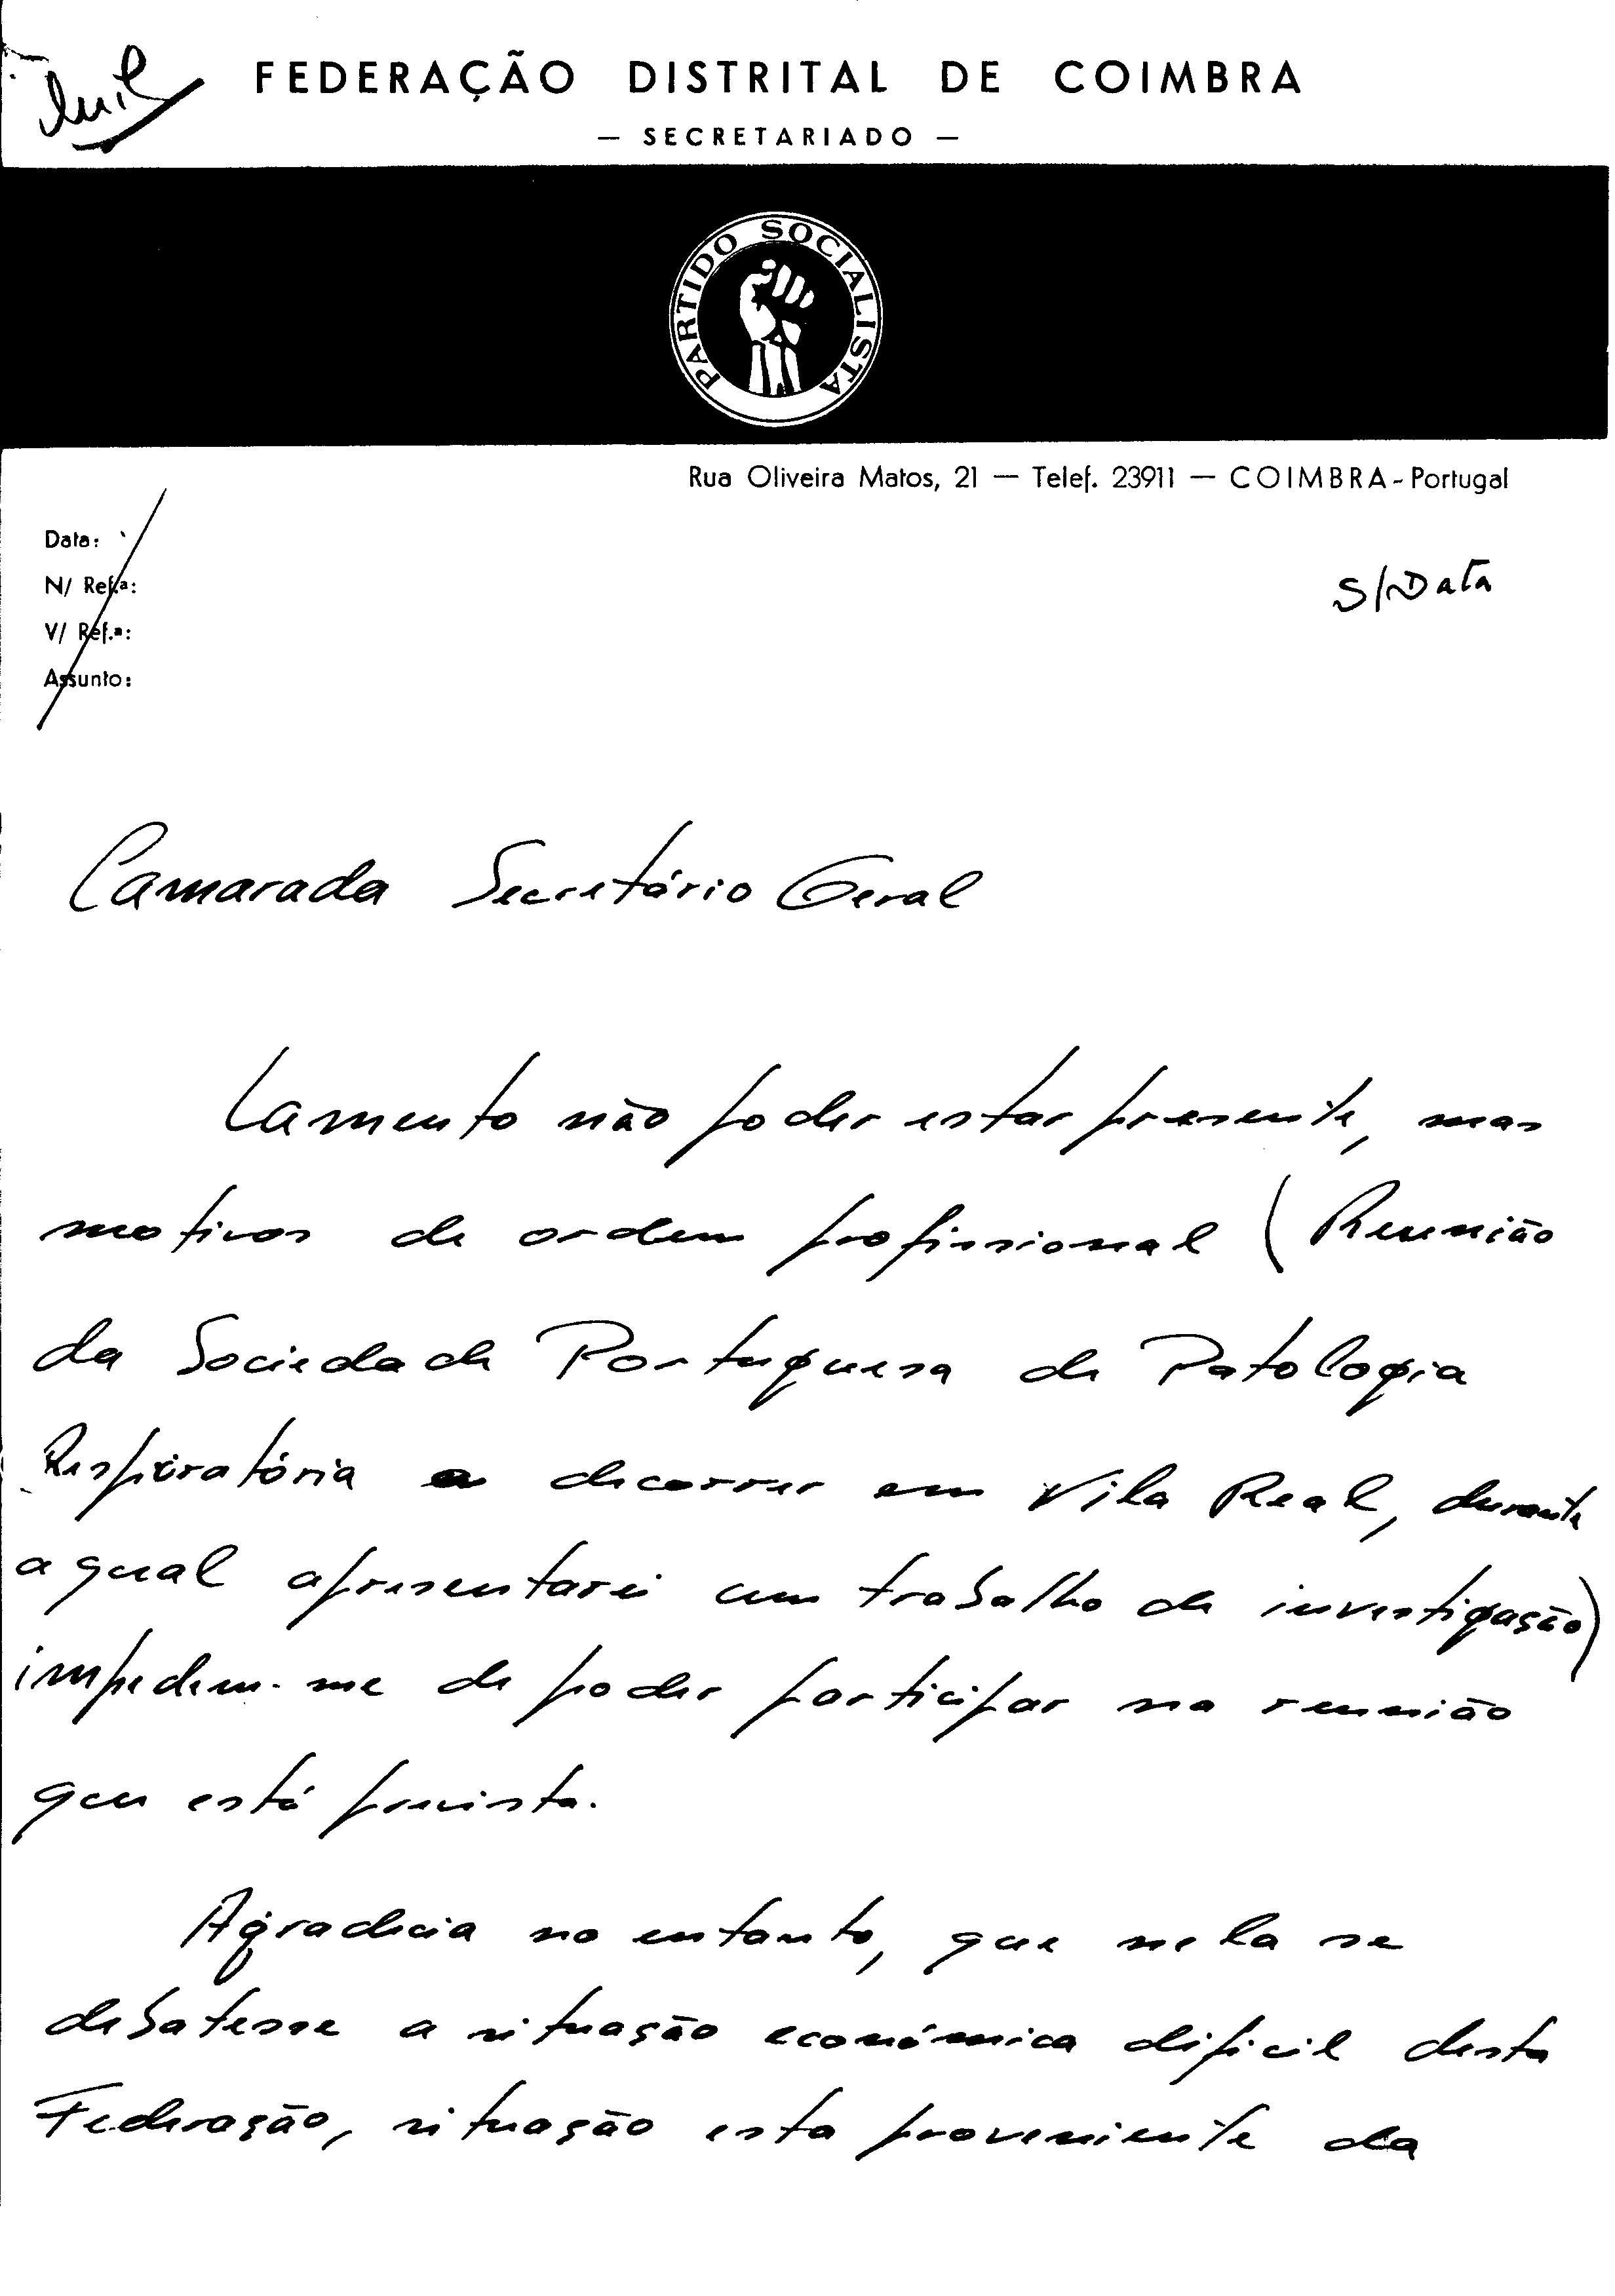 FEDERAÇÃO DISTRITAL DE COIMBRA
— SECRETARIADO —
PARTIDO SOCIALISTA
Rua Oliveira Matos, 21 — Telef. 23911 — COIMBRA - Portugal
Data:
S/Data
N/ Ref.ª:
V/ Ref.ª:
Assunto:
Camarada Secretário Geral
Lamento não poder estar presente, mas
motivos de ordem profissional (Reunião
da Sociedade Portuguesa de Patologia
Respiratória a decorrer em Vila Real, durante
a qual apresentarei um trabalho de investigação)
impedem-me de poder participar na reunião
que está prevista.
Agradecia no entanto, que nela se
debatesse a situação económica dificil desta
Federação, situação esta proveniente da